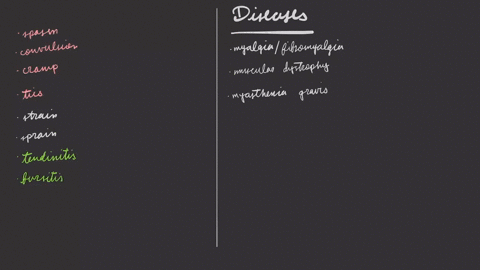 · spasm
· convulsion
· cramp
· tics
· strain
· sprain
· tendinitis
· bursitis
Diseases
· myalgia/fibromyalgia
· muscular dystrophy
· myasthenia gravis